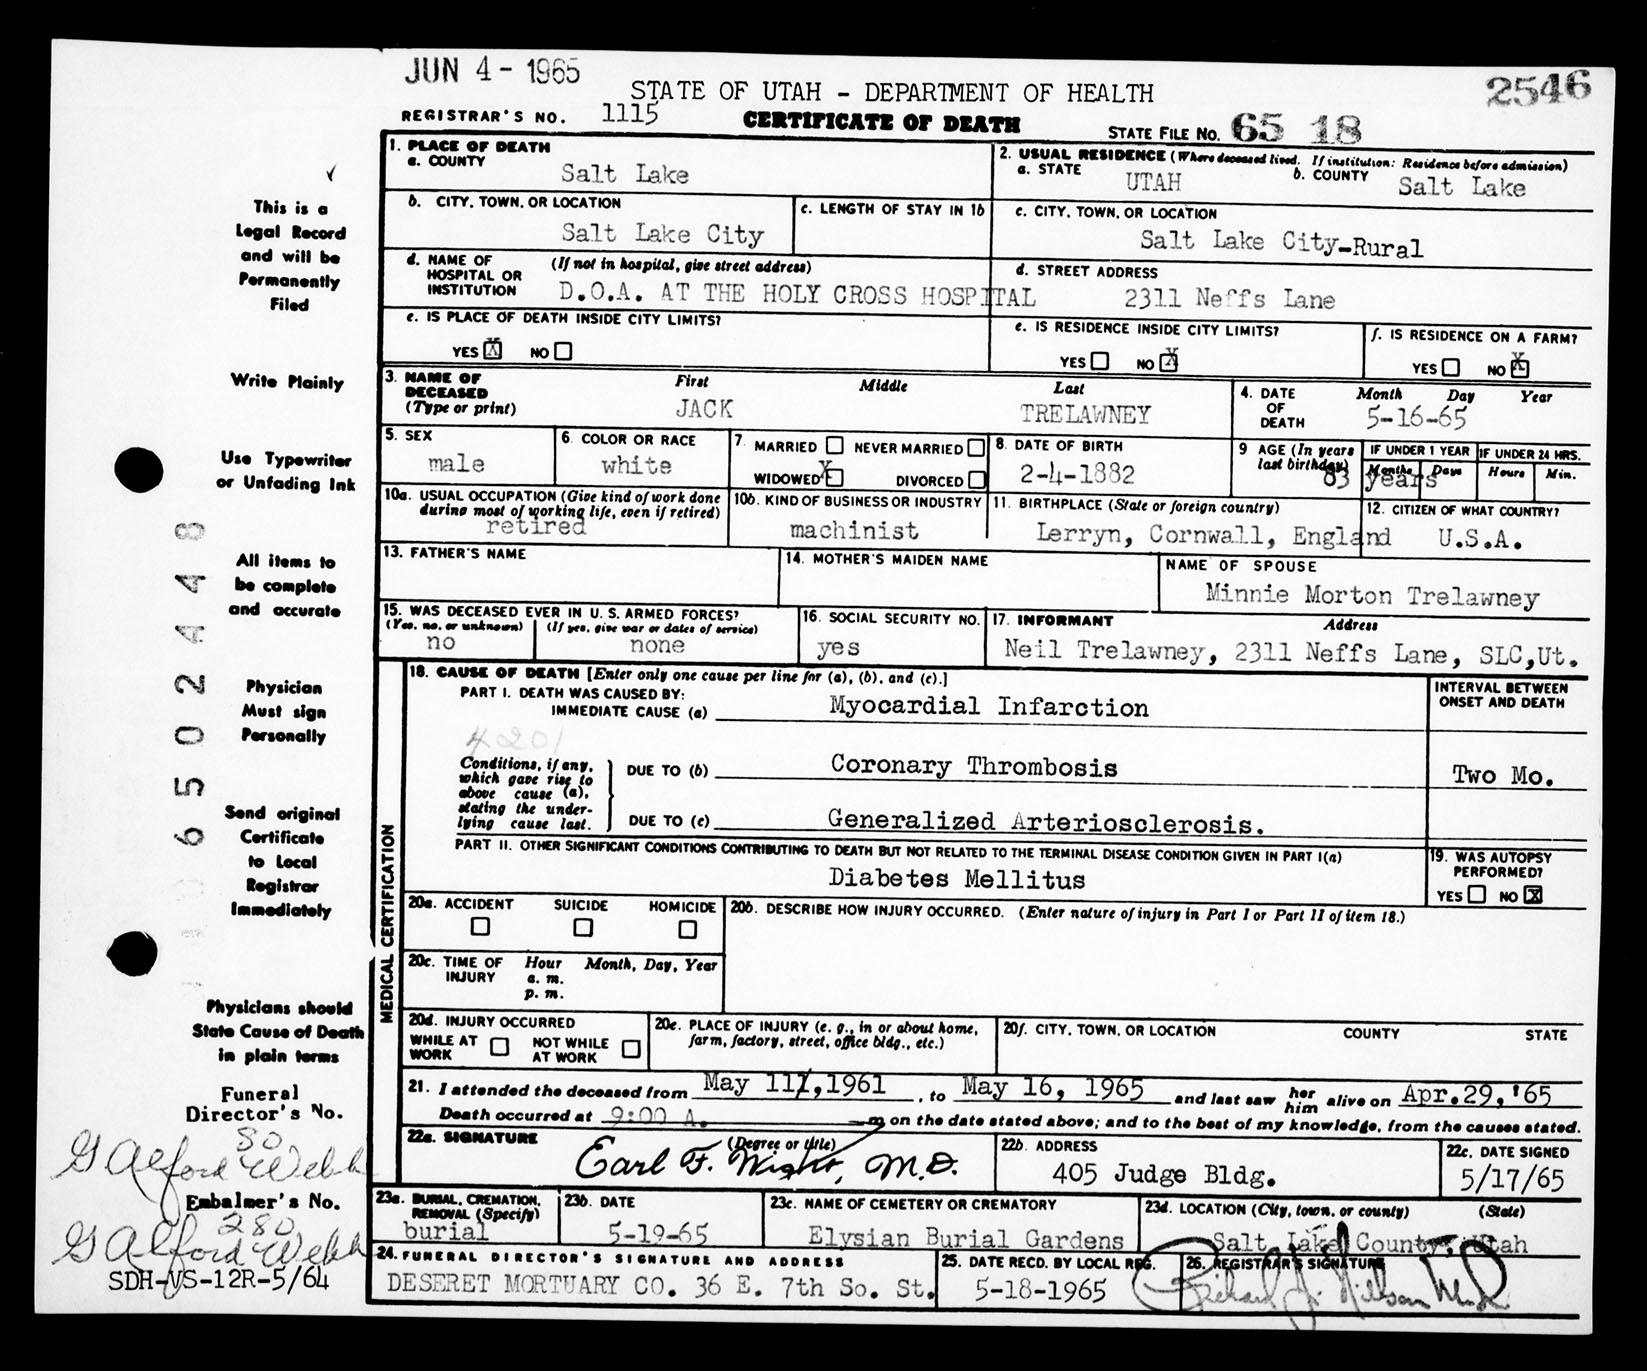 JUN 4 - 1965
2546
STATE OF UTAH - DEPARTMENT OF HEALTH
REGISTRAR'S NO. 1115 CERTIFICATE OF DEATH STATE FILE NO. 65 18
This is a
Legal Record
and will be
Permanently
Filed
Write Plainly
Use Typewriter
or Unfading Ink
All items to
be complete
and accurate
Physician
Must sign
Personally
Send original
Certificate
to Local
Registrar
Immediately
Physicians should
State Cause of Death
in plain terms
Funeral
Director's No.
80
G Alford Webb
Embalmer's No.
280
G Alford Webb
SDH-VS-12R-5/64
6502448
1. PLACE OF DEATH
a. COUNTY Salt Lake
2. USUAL RESIDENCE (Where deceased lived. If institution: Residence before admission)
a. STATE UTAH b. COUNTY Salt Lake
b. CITY, TOWN, OR LOCATION Salt Lake City
c. LENGTH OF STAY IN 1b
c. CITY, TOWN, OR LOCATION
Salt Lake City-Rural
d. NAME OF HOSPITAL OR INSTITUTION (If not in hospital, give street address)
D.O.A. AT THE HOLY CROSS HOSPITAL
d. STREET ADDRESS
2311 Neffs Lane
e. IS PLACE OF DEATH INSIDE CITY LIMITS?
YES X NO
e. IS RESIDENCE INSIDE CITY LIMITS?
YES NO X
f. IS RESIDENCE ON A FARM?
YES NO X
3. NAME OF DECEASED (Type or print) First Middle Last
JACK TRELAWNEY
4. DATE OF DEATH Month Day Year
5-16-65
5. SEX
male
6. COLOR OR RACE
white
7. MARRIED NEVER MARRIED
WIDOWED X DIVORCED
8. DATE OF BIRTH
2-4-1882
9 AGE (In years last birthday) IF UNDER 1 YEAR IF UNDER 24 HRS.
Months Days Hours Min.
83 years
10a. USUAL OCCUPATION (Give kind of work done during most of working life, even if retired)
retired
10b. KIND OF BUSINESS OR INDUSTRY
machinist
11. BIRTHPLACE (State or foreign country)
Lerryn, Cornwall, England
12. CITIZEN OF WHAT COUNTRY?
U.S.A.
13. FATHER'S NAME
14. MOTHER'S MAIDEN NAME
NAME OF SPOUSE
Minnie Morton Trelawney
15. WAS DECEASED EVER IN U. S. ARMED FORCES?
(Yes, no, or unknown) (If yes, give war or dates of service)
no none
16. SOCIAL SECURITY NO.
yes
17. INFORMANT Address
Neil Trelawney, 2311 Neffs Lane, SLC,Ut.
MEDICAL CERTIFICATION
18. CAUSE OF DEATH [Enter only one cause per line for (a), (b), and (c).]
INTERVAL BETWEEN ONSET AND DEATH
PART I. DEATH WAS CAUSED BY:
IMMEDIATE CAUSE (a) Myocardial Infarction
4201
Conditions, if any, which gave rise to above cause (a), stating the underlying cause last.
DUE TO (b) Coronary Thrombosis Two Mo.
DUE TO (c) Generalized Arteriosclerosis.
PART II. OTHER SIGNIFICANT CONDITIONS CONTRIBUTING TO DEATH BUT NOT RELATED TO THE TERMINAL DISEASE CONDITION GIVEN IN PART I(a)
Diabetes Mellitus
19. WAS AUTOPSY PERFORMED?
YES NO X
20a. ACCIDENT SUICIDE HOMICIDE
20b. DESCRIBE HOW INJURY OCCURRED. (Enter nature of injury in Part I or Part II of item 18.)
20c. TIME OF INJURY Hour Month, Day, Year
a. m.
p. m.
20d. INJURY OCCURRED
WHILE AT WORK NOT WHILE AT WORK
20e. PLACE OF INJURY (e. g., in or about home, farm, factory, street, office bldg., etc.)
20f. CITY, TOWN, OR LOCATION COUNTY STATE
21. I attended the deceased from May 11,1961, to May 16, 1965 and last saw her him alive on Apr.29,'65
Death occurred at 9:00 A. m on the date stated above; and to the best of my knowledge, from the causes stated.
22a. SIGNATURE (Degree or title)
Earl F. Wight, M.D.
22b. ADDRESS
405 Judge Bldg.
22c. DATE SIGNED
5/17/65
23a. BURIAL, CREMATION, REMOVAL (Specify)
burial
23b. DATE
5-19-65
23c. NAME OF CEMETERY OR CREMATORY
Elysian Burial Gardens
23d. LOCATION (City, town, or county) (State)
Salt Lake County, Utah
24. FUNERAL DIRECTOR'S SIGNATURE AND ADDRESS
DESERET MORTUARY CO. 36 E. 7th So. St.
25. DATE RECD. BY LOCAL REG.
5-18-1965
26. REGISTRAR'S SIGNATURE